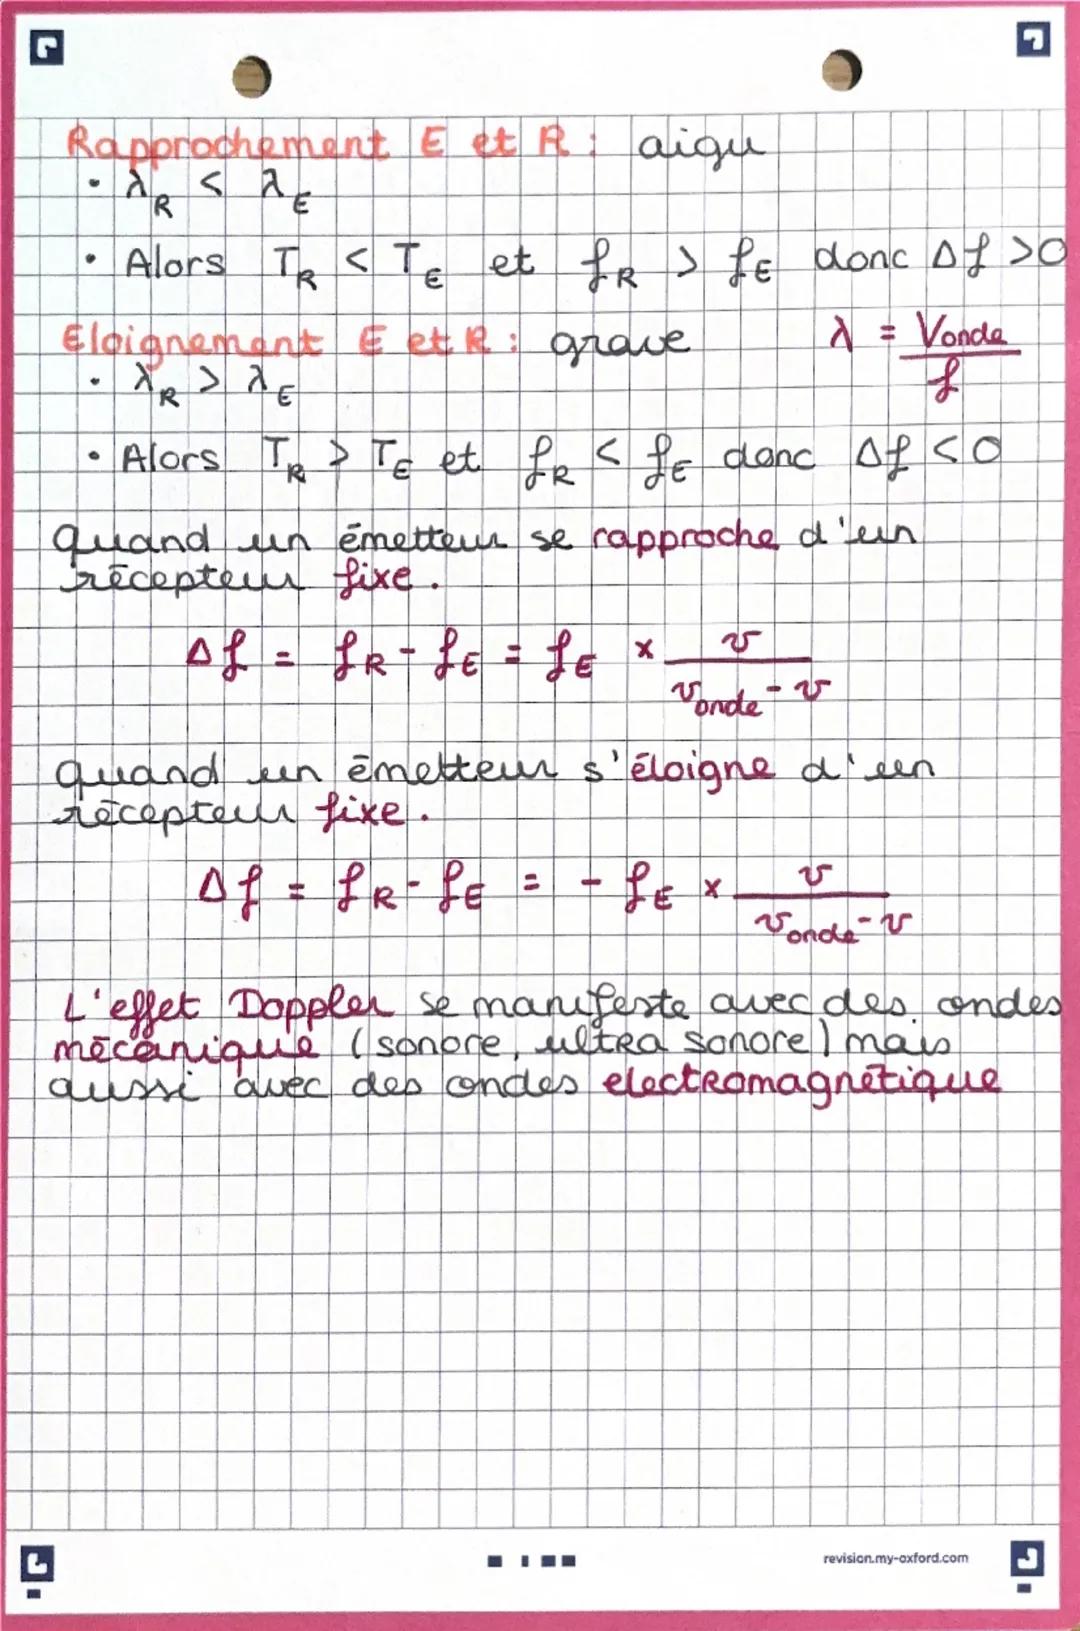 Rapprochement E et R : aigu
• λR < λE
• Alors TR < TE et fR > fE donc Δf >0
Eloignement E et R : grave
λ = Vonde / f
• λR > λE
• Alors TR > TE et fR < fE donc Δf <0
quand un émetteur se rapproche d'un
récepteur fixe.
Δf = fR - fE = fE × v / (vonde - v)
quand un émetteur s'éloigne d'un
récepteur fixe.
Δf = fR - fE = - fE × v / (vonde - v)
L'effet Doppler se manifeste avec des ondes
mécanique (sonore, ultra sonore) mais
aussi avec des ondes electromagnétique
revision.my-oxford.com